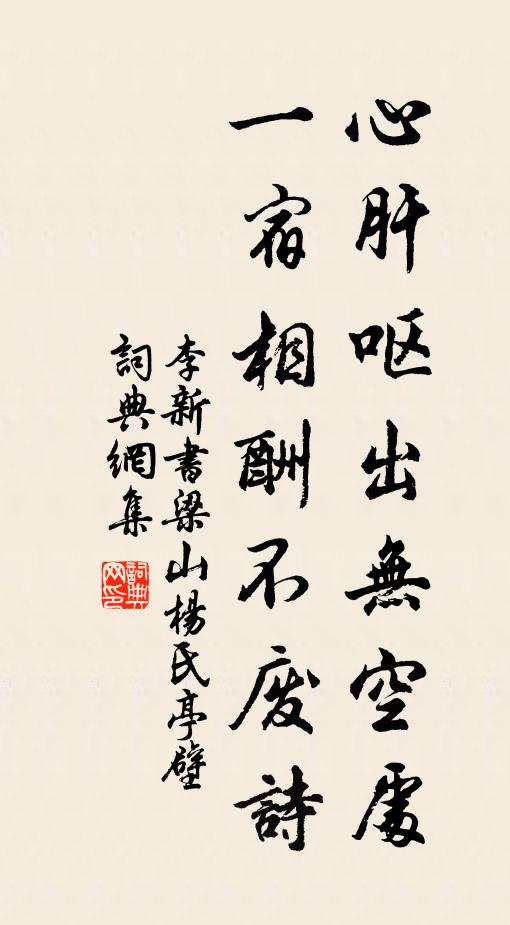 心肝呕出無空處
一宿相酬不废詩
李新書梁山楊氏亭壁
詞典網集
詞典网印